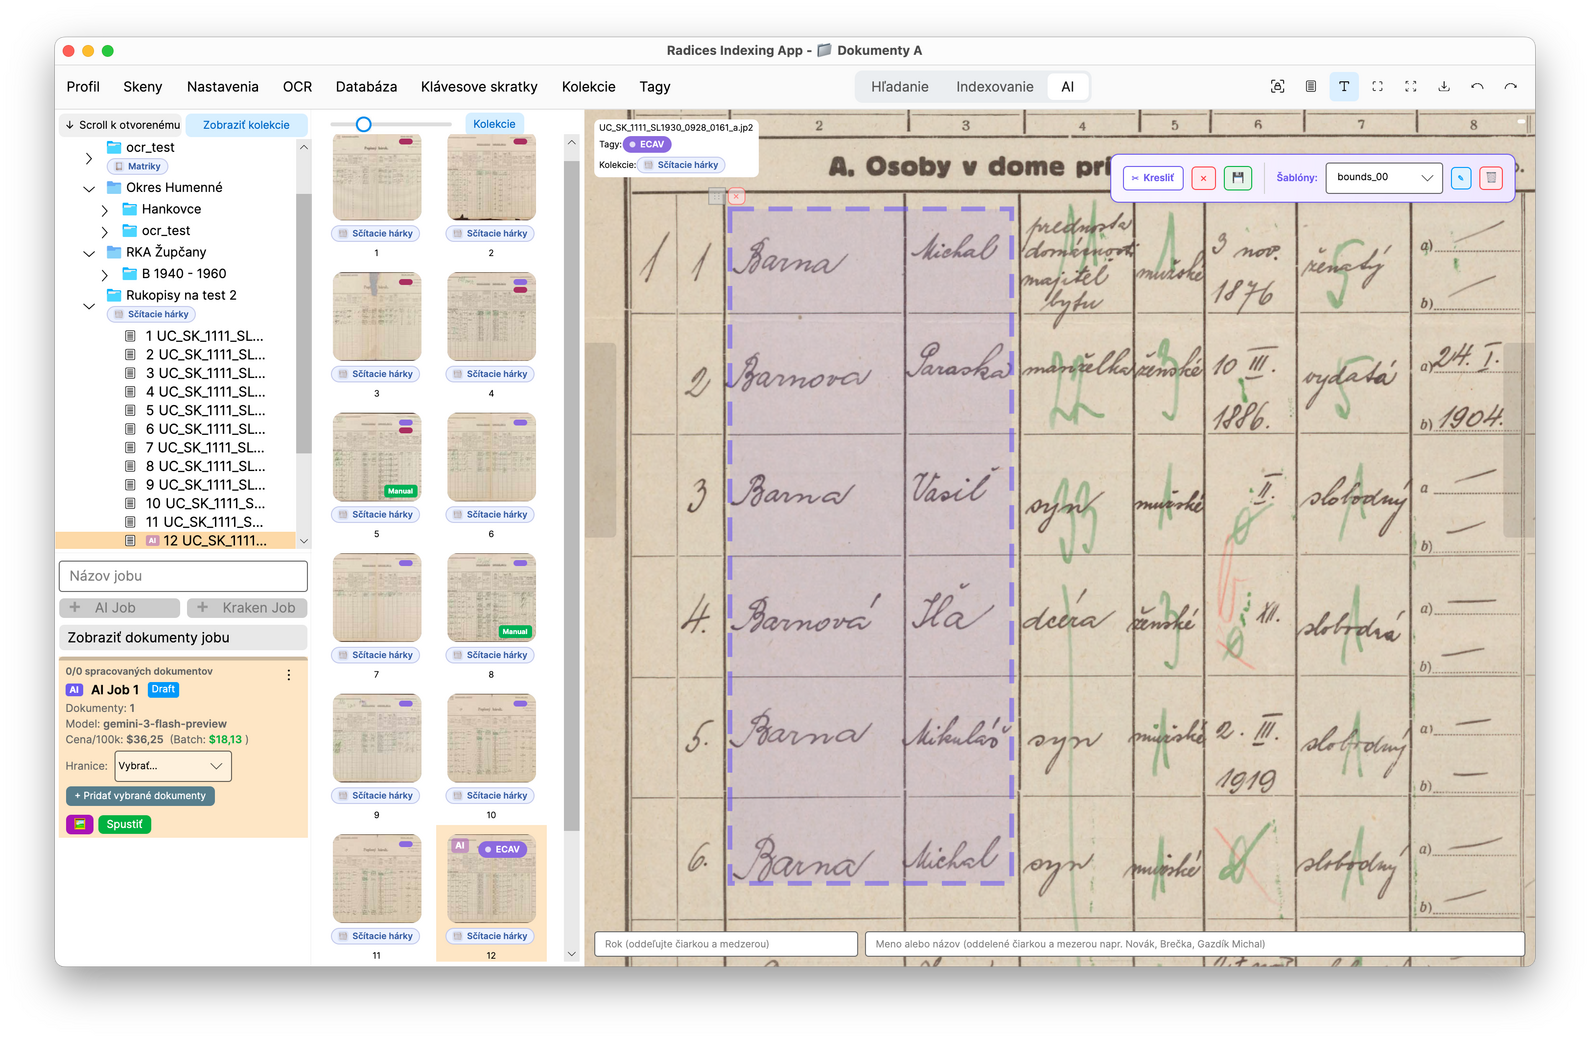 Radices Indexing App - Dokumenty A
Profil Skeny Nastavenia OCR Databáza Klávesove skratky Kolekcie Tagy
Hľadanie Indexovanie AI
T
↓ Scroll k otvorenému
Zobraziť kolekcie
ocr_test
Matriky
Okres Humenné
Hankovce
ocr_test
RKA Župčany
B 1940 - 1960
Rukopisy na test 2
Sčítacie hárky
1 UC_SK_1111_SL...
2 UC_SK_1111_SL...
3 UC_SK_1111_SL...
4 UC_SK_1111_SL...
5 UC_SK_1111_SL...
6 UC_SK_1111_SL...
7 UC_SK_1111_SL...
8 UC_SK_1111_SL...
9 UC_SK_1111_SL...
10 UC_SK_1111_SL...
11 UC_SK_1111_S...
AI 12 UC_SK_1111...
Názov jobu
+ AI Job
+ Kraken Job
Zobraziť dokumenty jobu
0/0 spracovaných dokumentov
AI AI Job 1 Draft
Dokumenty: 1
Model: gemini-3-flash-preview
Cena/100k: $36,25 (Batch: $18,13 )
Hranice: Vybrať...
+ Pridať vybrané dokumenty
Spustiť
Kolekcie
Sčítacie hárky
1
Sčítacie hárky
2
Sčítacie hárky
3
Sčítacie hárky
4
Manual
Sčítacie hárky
5
Sčítacie hárky
6
Sčítacie hárky
7
Manual
Sčítacie hárky
8
Sčítacie hárky
9
Sčítacie hárky
10
Sčítacie hárky
11
AI ECAV
Sčítacie hárky
12
UC_SK_1111_SL1930_0928_0161_a.jp2
Tagy: ECAV
Kolekcie: Sčítacie hárky
2 3 4 5 6 7 8
A. Osoby v dome prí
Kresliť
Šablóny: bounds_00
1 1 Barna Michal prednosta domácnosti majiteľ bytu mužské 3 nov. 1876 ženatý a) b)
2 Barnova Paraska manželka ženské 10 III. 1886. vydatá a) 24. I. b) 1904.
3 Barna Vasiľ syn mužské II. slobodný a b)
4. Barnová Iľa dcéra ženské XII. slobodná a) b)
5. Barna Mikuláš syn mužské 2. III. 1919 slobodný a) b)
6. Barna Michal syn mužské slobodný a) b)
Rok (oddeľujte čiarkou a medzerou)
Meno alebo názov (oddelené čiarkou a mezerou napr. Novák, Brečka, Gazdík Michal)